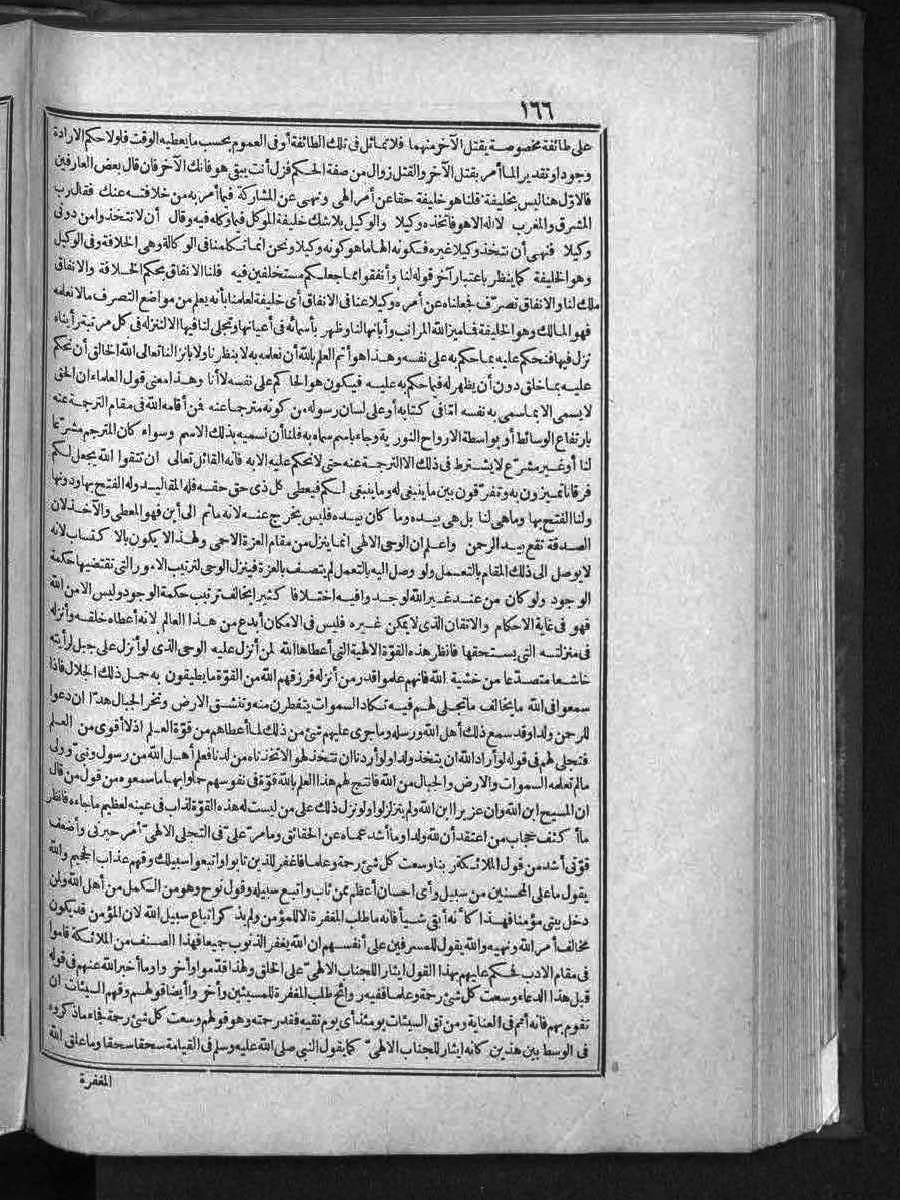 ١٦٦
على طائفة مخصوصة يقتل الآخر منهما فلا تماثل فى تلك الطائفة أو فى العموم بحسب ما يعطيه الوقت فلولا حكم الارادة
وجودا وتقدير الما أمر بقتل الآخر والقتل زوال من صفة الحكم فزل أنت يبقى هو فانك الآخر فان قال بعض العارفين
فالاول هنا ليس بخليفة قلنا هو خليفة حقا عن أمر الهى ونهى عن المشاركة فيما أمر به من خلافته عنك فقال رب
المشرق والمغرب لا اله الا هو فاتخذه وكيلا والوكيل بلا شك خليفة الموكل فيما وكله فيه وقال أن لا تتخذوا من دونى
وكيلا فنهى أن نتخذ وكيلا غيره فكونه الها ما هو كونه وكيلا ونحن انما تكلمنا فى الوكالة وهى الخلافة وفى الوكيل
وهو الخليفة كما ينظر باعتبار آخر قوله لنا وأنفقوا مما جعلكم مستخلفين فيه قلنا الانفاق بحكم الخلافة والانفاق
ملك لنا والانفاق تصرّف فجعلناه عن أمره وكيلا عنا فى الانفاق أى خليفة لعلمنا بأنه يعلم من مواضع التصرف ما لا نعلمه
فهو المالك وهو الخليفة فما ميز الله المراتب وأبانها لنا وظهر بأسمائه فى أعيانها وتجلى لنا فيها الا لننزله فى كل مرتبة رأيناه
نزل فيها فنحكم عليه بما حكم به على نفسه وهذا هو أتم العلم بالله أن نعلمه به لا بنظرنا ولا بانزالنا تعالى الله الخالق أن نحكم
عليه بما خلق دون أن يظهر له فيما حكم به عليه فيكون هو الحاكم على نفسه لا أنا وهذا معنى قول العلماء ان الحق
لا يسمى الا بما سمى به نفسه امّا فى كتابه أو على لسان رسوله من كونه مترجما عنه فمن أقامه الله فى مقام الترجمة عنه
بارتفاع الوسائط أو بواسطة الارواح النورية وجاء باسم سماه به فلنا أن نسميه بذلك الاسم وسواء كان المترجم مشرّعا
لنا أو غير مشرّع لا يشترط فى ذلك الا الترجمة عنه حتى لا نحكم عليه الا به فانه القائل تعالى ان تتقوا الله يجعل لكم
فرقانا تميزون به وتفرّقون بين ما ينبغى له وما ينبغى لكم فيعطى كل ذى حق حقه فله المقاليد وله الفتح بها ودونها
ولنا الفتح بها وما هى لنا بل هى بيده وما كان بيده فليس يخرج عنه لانه ما ثم الى أين فهو المعطى والآخذ لان
الصدقة تقع بيد الرحمن واعلم ان الوحى الالهى انما ينزل من مقام العزة الاحمى ولهذا لا يكون بالاكتساب لانه
لا يوصل الى ذلك المقام بالتعمل ولو وصل اليه بالتعمل لم يتصف بالعزة فينزل الوحى لترتيب الامور التى تقتضيها حكمة
الوجود ولو كان من عند غير الله لوجدوا فيه اختلافا كثيرا يخالف ترتيب حكمة الوجود وليس الا من الله
فهو فى غاية الاحكام والاتقان الذى لا يمكن غيره فليس فى الامكان أبدع من هذا العالم لانه أعطاه خلقه وأنزله
فى منزلته التى يستحقها فانظر هذه القوّة الالهية التى أعطاها الله لمن أنزل عليه الوحى الذى لو أنزل على جبل لرأيته
خاشعا متصدّعا من خشية الله فانهم علموا قدر من أنزله فرزقهم الله من القوّة ما يطيقون به حمل ذلك الجلال فاذا
سمعوا فى الله ما يخالف ما تجلى لهم فيه تكاد السموات يتفطرن منه وتنشق الارض وتخر الجبال هدّا ان دعوا
للرحمن ولدا وقد سمع ذلك أهل الله ورسله وما جرى عليهم شئ من ذلك لما أعطاهم من قوّة العلم اذ لا أقوى من العلم
فتجلى لهم فى قوله لو أراد الله ان يتخذ ولدا ولو أردنا ان نتخذ لهوا لاتخذناه من لدنا فعلم أهل الله من رسول ونبىّ وولى
ما لم تعلمه السموات والارض والجبال من الله فأنتج لهم هذا العلم بالله قوّة فى نفوسهم حملوا بها ما سمعوه من قول من قال
ان المسيح ابن الله وان عزيرا ابن الله ولم يتزلزلوا ولو نزل ذلك على من ليست له هذه القوّة لذاب فى عينه لعظيم ما جاءه فانظر
ما أكثف حجاب من اعتقد أن لله ولدا وما أشد عماه عن الحقائق ومما مرّ علىّ فى التجلى الالهىّ أمر حيرنى وأضعف
قوّتى أشد من قول الملائكة ربنا وسعت كل شئ رحمة وعلما فاغفر للذين تابوا واتبعوا سبيلك وقهم عذاب الجحيم والله
يقول ما على المحسنين من سبيل وأى احسان أعظم ممن تاب واتبع سبيله وقول نوح وهو من الكمل من أهل الله ولمن
دخل بيتى مؤمنا فهذا كأنه أبقى شيأ فانه ما طلب المغفرة الا للمؤمن ولم يذكر اتباع سبيل الله لان المؤمن قد يكون
مخالف أمر الله ونهيه والله يقول للمسرفين على أنفسهم ان الله يغفر الذنوب جميعا فهذا الصنف من الملائكة قاموا
فى مقام الادب فحكم عليهم بهذا القول ايثارا للجناب الالهىّ على الخلق ولهذا قدّموا وأخروا وما أخبر الله عنهم فى قوله
قبل هذا الدعاء وسعت كل شئ رحمة وعلما ففيه روائح طلب المغفرة للمسيئين وأخروا أيضا قولهم وقهم السيئات ان
تقوم بهم فانه أتم فى العناية ومن تق السيئات يومئذ أى يوم تقيه فقد رحمته وهو قولهم وسعت كل شئ رحمة فجاء ما ذكروه
فى الوسط بين هذين كأنه ايثار للجناب الالهىّ كما يقول النبى صلى الله عليه وسلم فى القيامة سحقا سحقا وما علق الله
المغفرة